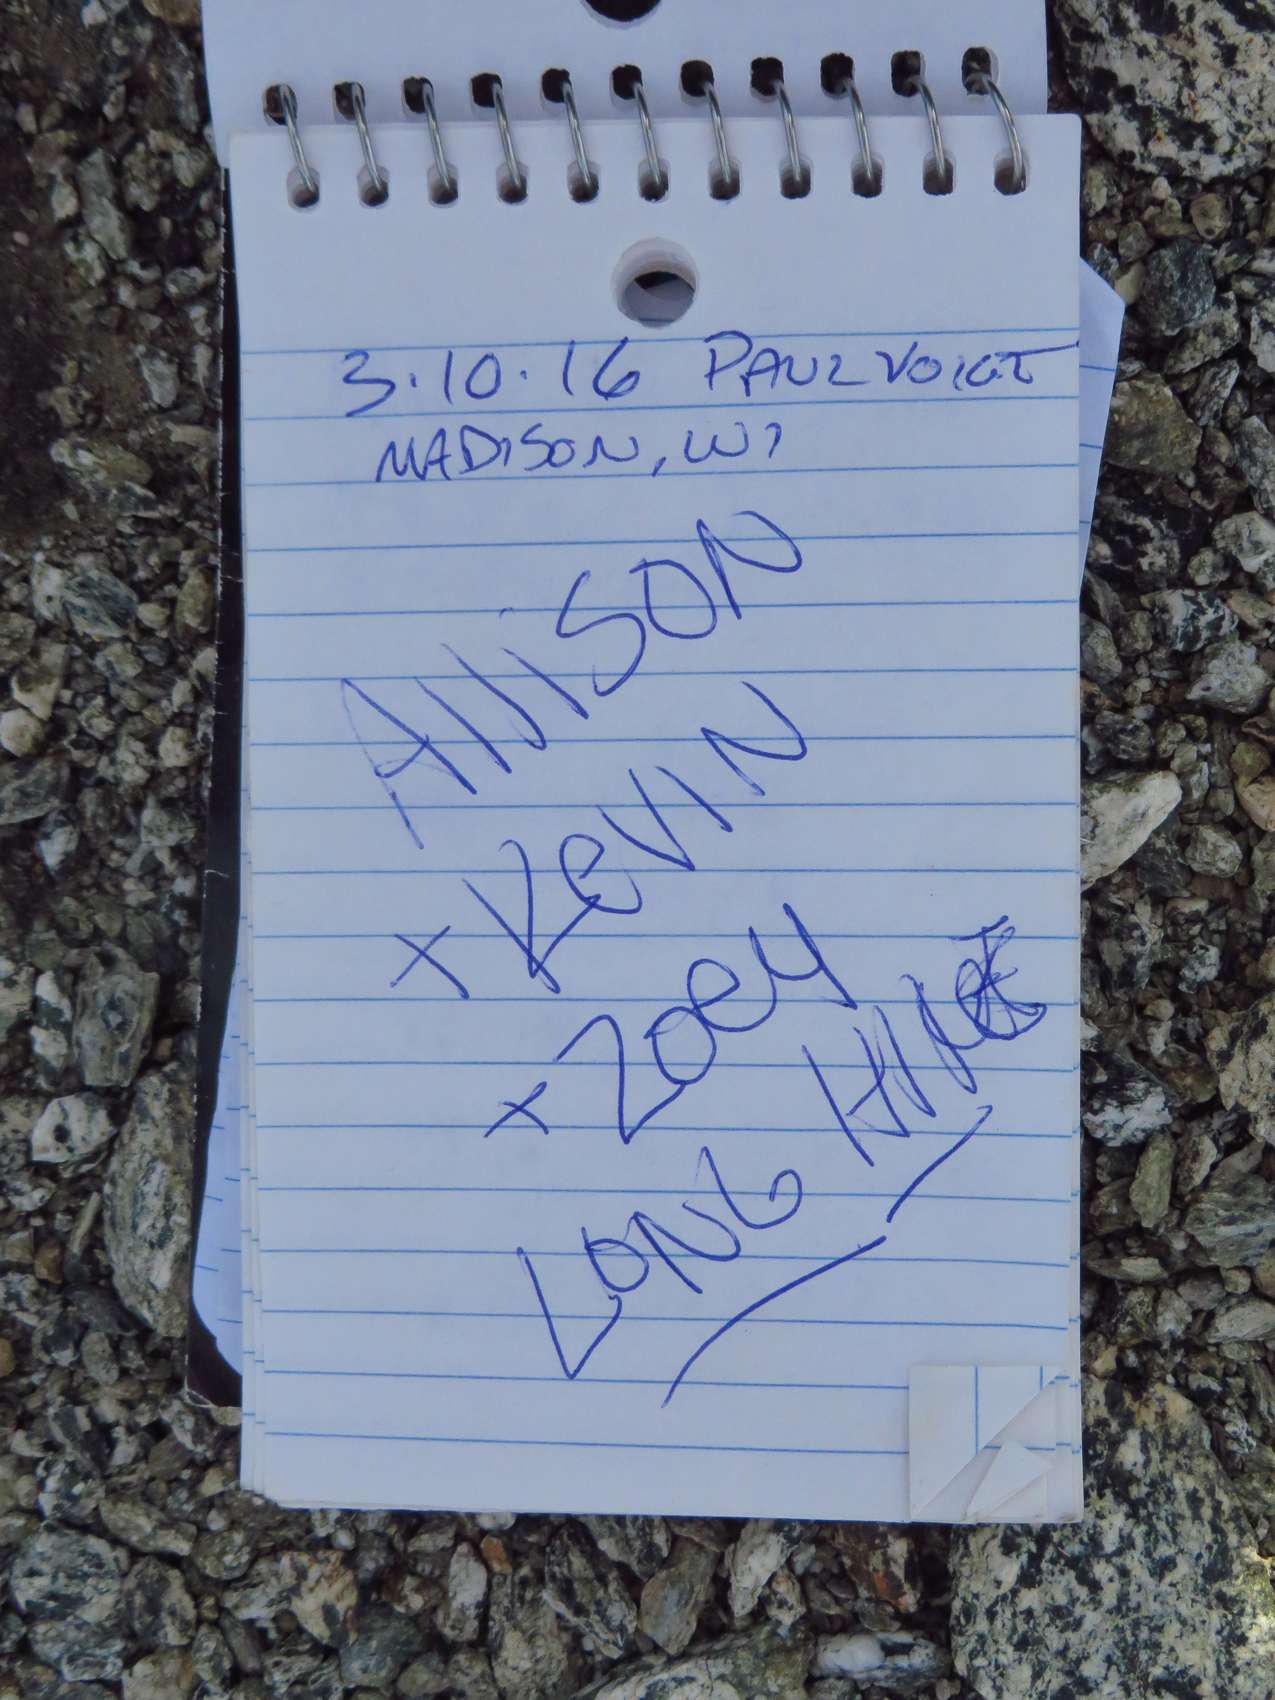 3.10.16 PAUL VOIGT
MADISON, WI
AlliSON
x KeVIN
x Zoey
LONG